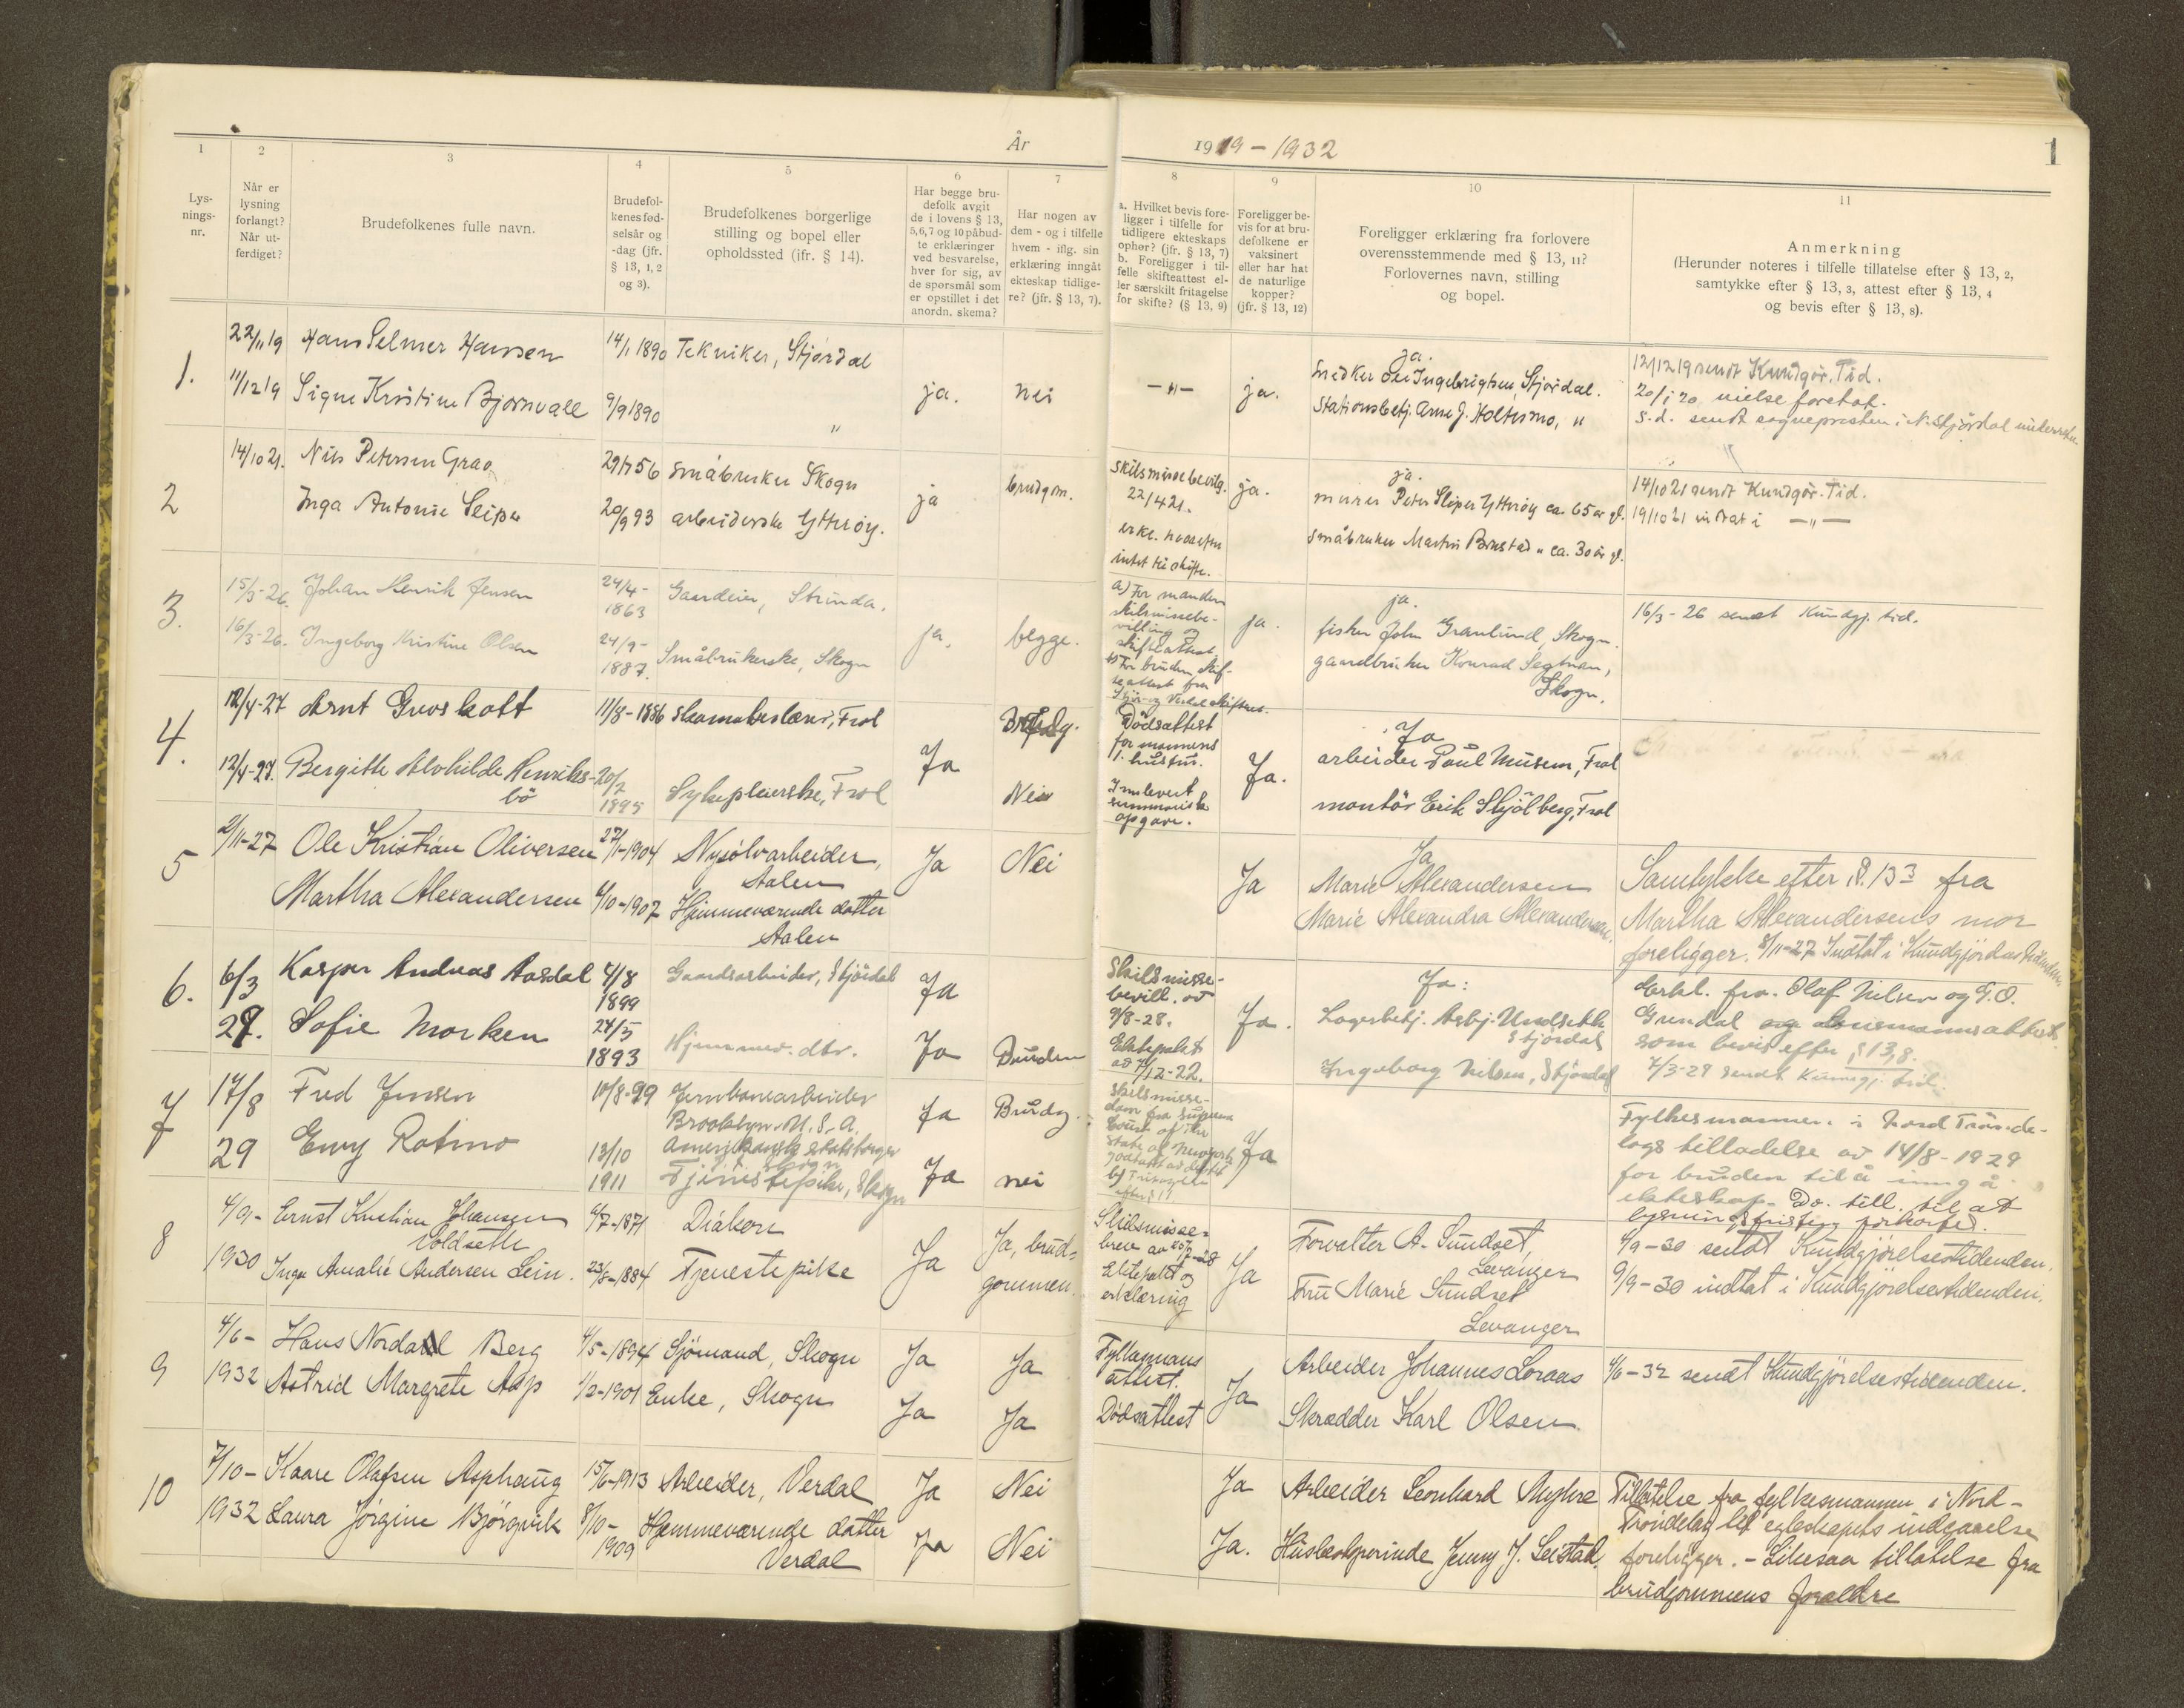 År 1919 - 1932
1
1
2
3
4
5
6
7
8
9
10
11
Lys-
nings-
nr.
Når er
lysning
forlangt?
Når ut-
ferdiget?
Brudefolkenes fulle navn.
Brudefol-
kenes fød-
selsår og
-dag (jfr.
§ 13, 1, 2
og 3).
Brudefolkenes borgerlige
stilling og bopel eller
opholdssted (jfr. § 14).
Har begge bru-
defolk avgit
de i lovens § 13,
5, 6, 7 og 10 påbud-
te erklæringer
ved besvarelse,
hver for sig, av
de spørsmål som
er opstillet i det
anordn. skema?
Har nogen av
dem - og i tilfelle
hvem - iflg. sin
erklæring inngåt
ekteskap tidlige-
re? (jfr. § 13, 7).
a. Hvilket bevis fore-
ligger i tilfelle for
tidligere ekteskaps
ophør? (jfr. § 13, 7)
b. Foreligger i til-
felle skifteattest el-
ler særskilt fritagelse
for skifte? (§ 13, 9)
Foreligger be-
vis for at bru-
defolkene er
vaksinert
eller har hat
de naturlige
kopper?
(jfr. § 13, 12)
Foreligger erklæring fra forlovere
overensstemmende med § 13, 11?
Forlovernes navn, stilling
og bopel.
Anmerkning
(Herunder noteres i tilfelle tillatelse efter § 13, 2,
samtykke efter § 13, 3, attest efter § 13, 4
og bevis efter § 13, 8).
1.
22/11 19 Hans Selmer Hansen 14/1 1890 Tekniker, Stjørdal
11/12 19 Signe Kristine Bjørnvall 9/9 1890 "
ja. nei -"- ja.
ja.
Snedker Ole Ingebrigtsen, Stjørdal.
Stationsbetj. Arne J. Holtesmo, "
12/12 19 sendt Kundgør. Tid.
20/1 20 vielse foretat.
s.d. sendt sognepresten i N. Stjørdal
2
14/10 21. Nils Petersen Grao 29/7 56 Småbruker Skogn
Inga Antonie Sliper 20/9 93 arbeiderske Ytterøy.
ja brudgm.
skilsmissebevilg.
22/4 21.
erkl. hvorefter
intet til skifte.
ja.
ja.
murer Peter Sliper Ytterøy ca. 65 år gl.
småbruker Martin " ca. 30 år gl.
14/10 21 sendt Kundgør. Tid.
19/10 21 indtat i -"-
3.
15/3-26. Johan Henrik Jensen 24/4-1863 Gaardeier, Strinda.
16/3-26. Ingeborg Kristine Olsen 24/9-1887. Småbrukerske, Skogn
ja. begge.
a) For manden
skilsmissebe-
villing og
skifteattest.
b) For bruden skif-
teattest fra
Stjør- og Verdal skifteret.
ja.
ja.
fisker John Granlund, Skogn.
gaardbruker Konrad Segtnan,
Skogn.
16/3-26 sendt Kundgj. tid.
4.
12/4-27 Arnt Grevskott 11/8-1886 skomakerlærer, Frol
12/4-27. Bergitte Alvhilde Henriks-
bö
20/2 1895 Sykepleierske, Frol
Ja Brudg.
Nei
Dödsattest
for mannens
1. hustru.
Innlevert
summarisk
opgave.
Ja.
Ja
arbeider Paul Musem, Frol
montör Erik Skjölberg, Frol
5
2/11-27 Ole Kristian Oliversen 27/1-1904 Nysølvarbeider,
Aalen
Martha Alexandersen 6/10-1907 Hjemmeværende datter
Aalen
Ja Nei Ja
Ja
Marie Alexandersen
Marie Alexandra Alexandersen.
Samtykke efter §. 13 3 fra
Martha Alexandersens mor
foreligger. 8/11-27 Indtat i Kundgjørelsestidenden
6.
6/3 Kasper Andreas Aasdal 4/8 1899 Gaardsarbeider, Stjördal
29. Sofie Morken 24/5 1893 Hjemmev. dtr.
Ja
Ja Bruden
Skilsmisse-
bevill. av
9/8-28.
Ektepakt
av 7/12-22.
Ja.
Ja:
Lagerbetj. Asbj. Undsekk
Stjördal
Ingeborg Nilsen, Stjördal
Erkl. fra Olaf Nilsen og G.O.
Grendal og lensmannsattest
som bevis efter § 13,8.
7/3-29 sendt Kunngj. tid.
7
17/8 Fred Jensen 10/8-99 Jernbanearbeider
Brooklyn. U.S.A.
Amerikansk statsborger
29 Eny Rotmo 13/10 1911 Tjenestepike, Skogn
Ja Brudg.
Ja nei
Skilsmisse-
dom fra Supreme
Court of The
State of Newyork
Ja
Fylkesmannen i Nord Trönde-
lags tilladelse av 14/8-1929
for bruden til å inngå
ekteskap. Do. till. til at
lysningsfristen forkortes.
8
4/9- Ernst Kristian Hansen
Voldseth
4/7-1871 Diakon
1930 Inga Amalie Andersen Lein. 23/8-1884 Tjenestepike
Ja Ja, brud-
gommen.
Skilsmisse-
brev av
Ektepakt og
erklæring
Ja
Forvalter A. Sundset,
Levanger
Fru Marie Sundset
Levanger
4/9-30 sendt Kundgjørelsestidenden.
9/9-30 indtat i Kundgjørelsestidenden.
9
4/6- Hans Nordahl Berg 4/5-1894 Sjömand, Skogn
1932 Astrid Margrete Asp 1/2-1901 Enke, Skogn
Ja Ja
Ja Ja
Fylkesmans
attest.
Dödsattest
Ja
Arbeider Johannes Loraas
Skrædder Karl Olsen
4/6-32 sendt Kundgjørelsestidenden.
10
7/10- Kaare Olafsen Asphaug 15/6-1913 Arbeider, Verdal
1932 Laura Jørgine Bjørgvik 8/10-1909 Hjemmeværende datter
Verdal
Ja Nei
Ja Nei
Ja Arbeider Leonhard Myhre
Ja. Husbestyrerinde Jenny J. Leistad.
Tillatelse fra fylkesmannen i Nord-
Trøndelag til egteskapets indgaaelse
foreligger. - Likesaa tillatelse fra
brudgommens forældre